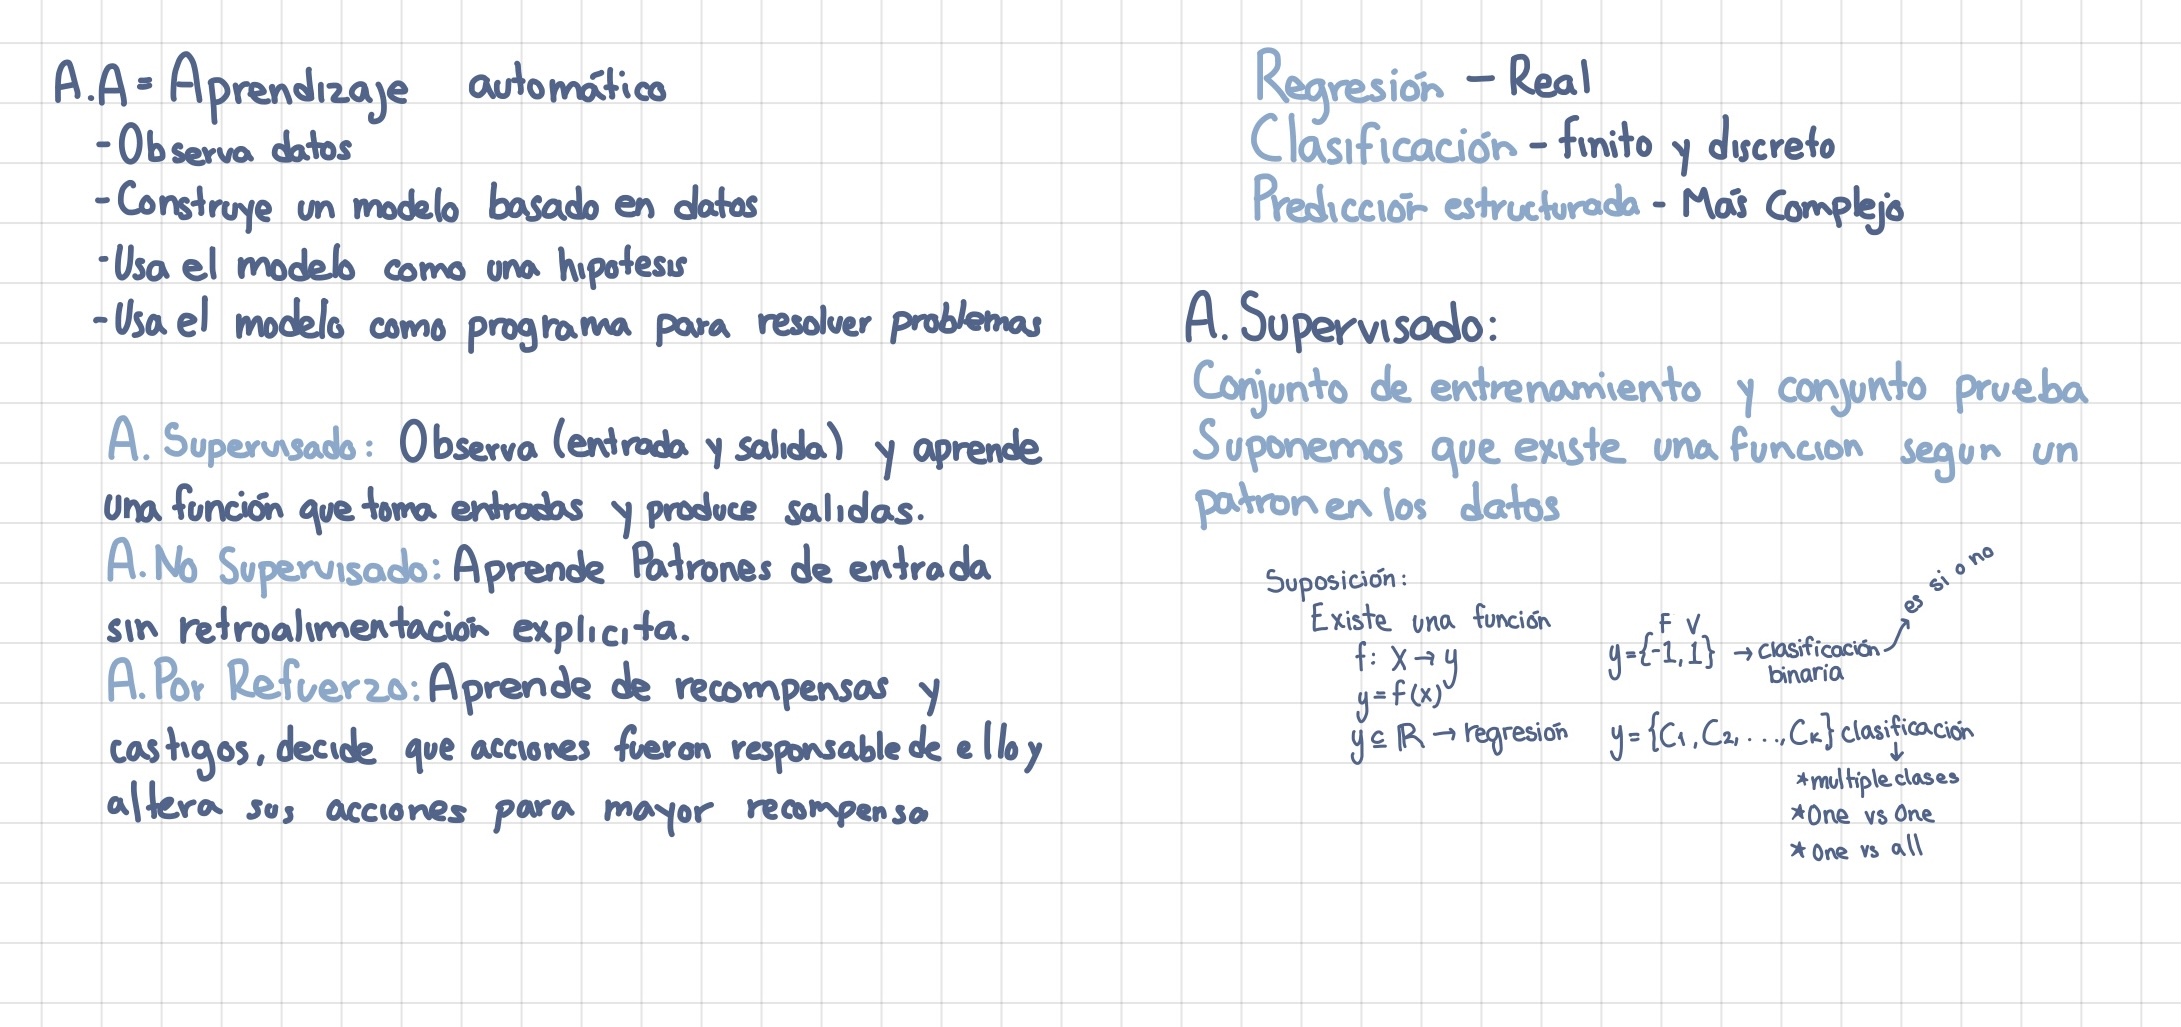 A.A = Aprendizaje automático
- Observa datos
- Construye un modelo basado en datos
- Usa el modelo como una hipotesis
- Usa el modelo como programa para resolver problemas
A. Supervisado: Observa (entrada y salida) y aprende
una función que toma entradas y produce salidas.
A. No Supervisado: Aprende Patrones de entrada
sin retroalimentación explicita.
A. Por Refuerzo: Aprende de recompensas y
castigos, decide que acciones fueron responsable de ello y
altera sus acciones para mayor recompensa
Regresión - Real
Clasificación - finito y discreto
Predicción estructurada - Más Complejo
A. Supervisado:
Conjunto de entrenamiento y conjunto prueba
Suponemos que existe una funcion segun un
patron en los datos
Suposición:
Existe una función
f: X → y
y = f(x)
y ⊆ ℝ → regresión
F V
y = {-1, 1} → clasificación
binaria
es si o no
y = {C1, C2, ..., CK} clasificación
↓
* multiple clases
* One vs One
* One vs all